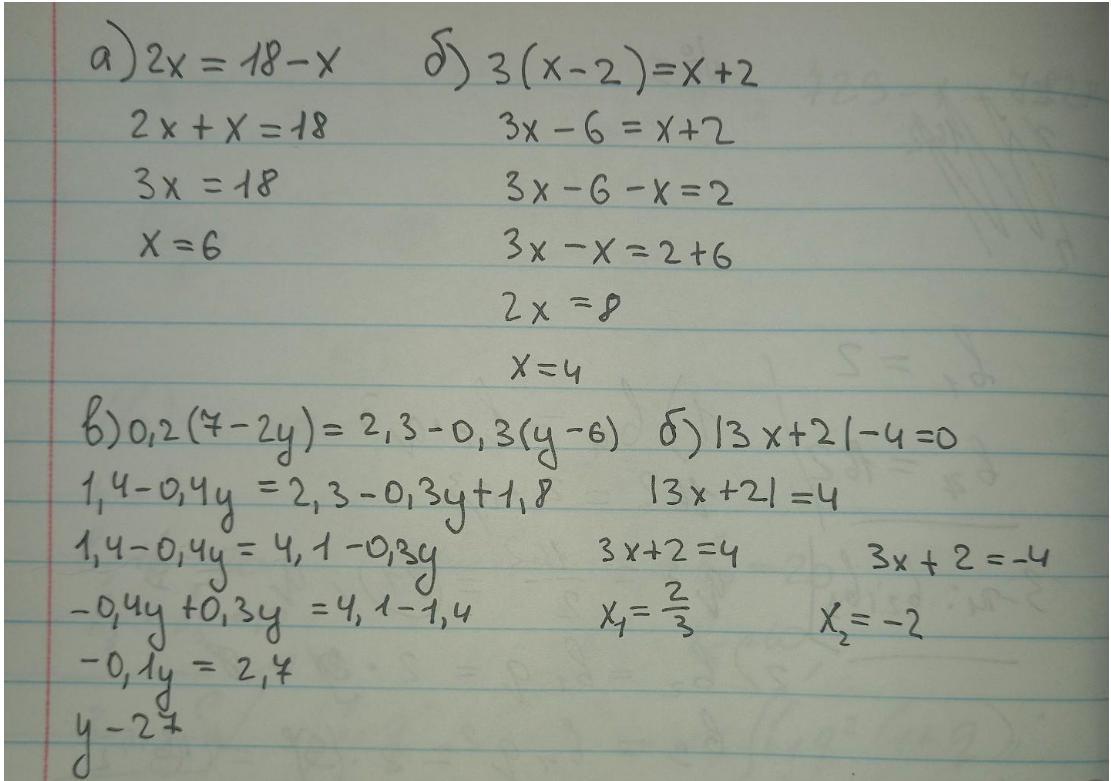 а) 2x = 18 - x
2x + x = 18
3x = 18
x = 6
б) 3(x - 2) = x + 2
3x - 6 = x + 2
3x - 6 - x = 2
3x - x = 2 + 6
2x = 8
x = 4
в) 0,2(7 - 2y) = 2,3 - 0,3(y - 6)
1,4 - 0,4y = 2,3 - 0,3y + 1,8
1,4 - 0,4y = 4,1 - 0,3y
-0,4y + 0,3y = 4,1 - 1,4
-0,1y = 2,7
y - 27
б) |3x + 2| - 4 = 0
|3x + 2| = 4
3x + 2 = 4    3x + 2 = -4
x₁ = 2/3    x₂ = -2